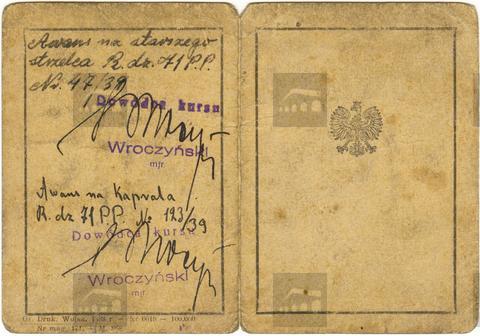 Awans na starszego
strzelca R. dz. 71 P.P.
Nr. 47/39
Dowódca kursu
Wroczyński
mjr.
Awans na Kaprala
R. dz 71 P.P. Nr 123/39
Dowódca kursu
Wroczyński
mjr.
Druk. Nr 0019 — 100.000
Nr mag.